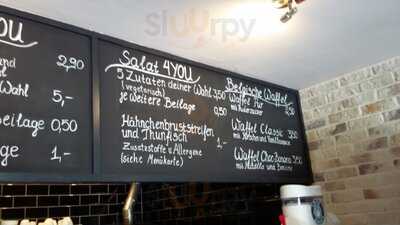 YOU
2,90
Wahl 5,-
Beilage 0,50
e 1,-
Salat 4YOU
5 Zutaten deiner Wahl 3,50
(vegetarisch)
je weitere Beilage 0,50
Hähnchenbruststreifen
und Thunfisch 1,-
Zusatzstoffe u Allergene
(siehe Menükarte)
Belgische Waffel
Waffel Pur 2,50
mit Puderzucker
Waffel Classic 3,50
mit Kirschen und
Waffel Choc-Banana 3,50
mit Nutella und Banane
Slurpy